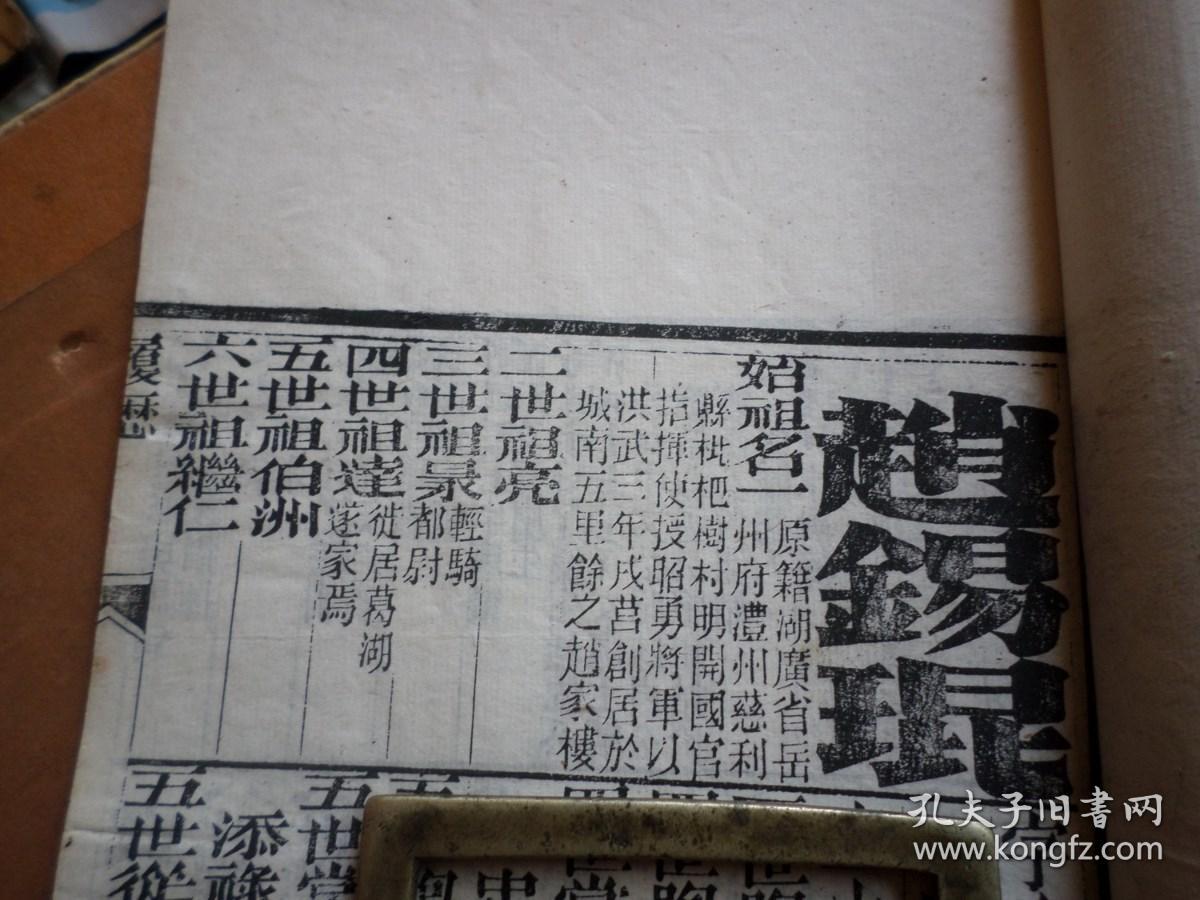 趙錫琨
始祖名一
原籍湖廣省岳
州府澧州慈利
縣枇杷樹村明開國官
指揮使授昭勇將軍以
洪武三年戌莒創居於
城南五里餘之趙家樓
二世祖亮
三世祖杲
輕騎
都尉
四世祖達
徙居葛湖
遂家焉
五世祖伯洲
六世祖繼仁
履歷
五世
添祿
五世從
孔夫子旧书网
www.kongfz.com